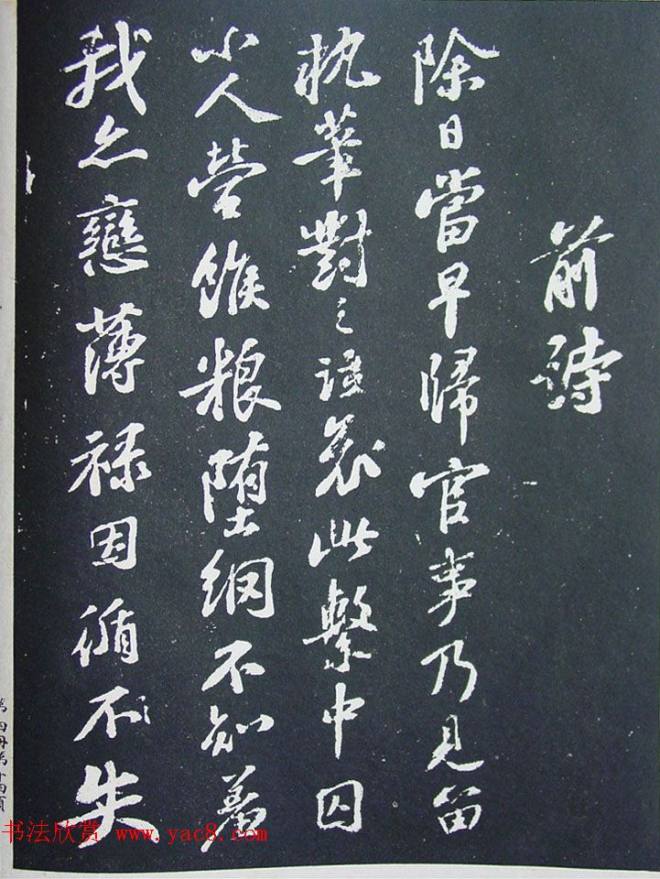 前詩
除日當早歸官事乃見留
執筆對之泣哀此繫中囚
小人營餱粮墮網不知羞
我亦戀薄祿因循不失
第四册第十四頁
书法欣赏 www.yac8.com